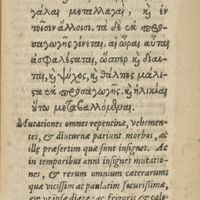 γάλαι μεταλλαγαὶ, καὶ ἐν
τοῖσιν ἄλλοισι. τὰ δὲ ἐκ προσ-
αγωγῆς γίνεται, αἱ ὧραι αὗται
ἀσφαλέσταται, ὥσπερ καὶ δίαι-
ται, καὶ ψῦχος, καὶ θάλπος μάλισ-
τα ἐκ προσαγωγῆς, καὶ ἡλικίαι
οὕτω μεταβαλλόμεναι.
Mutationes omnes repentinæ, vehemen-
tes, & diuturnæ pariunt morbos, ac
ille præsertim quæ sunt insignes. Ac
in temporibus anni insignes mutatio-
nes, & rerum omnium cæterarum:
quæ vicissim ac paulatim securissimæ,
ac frigoris & calo-